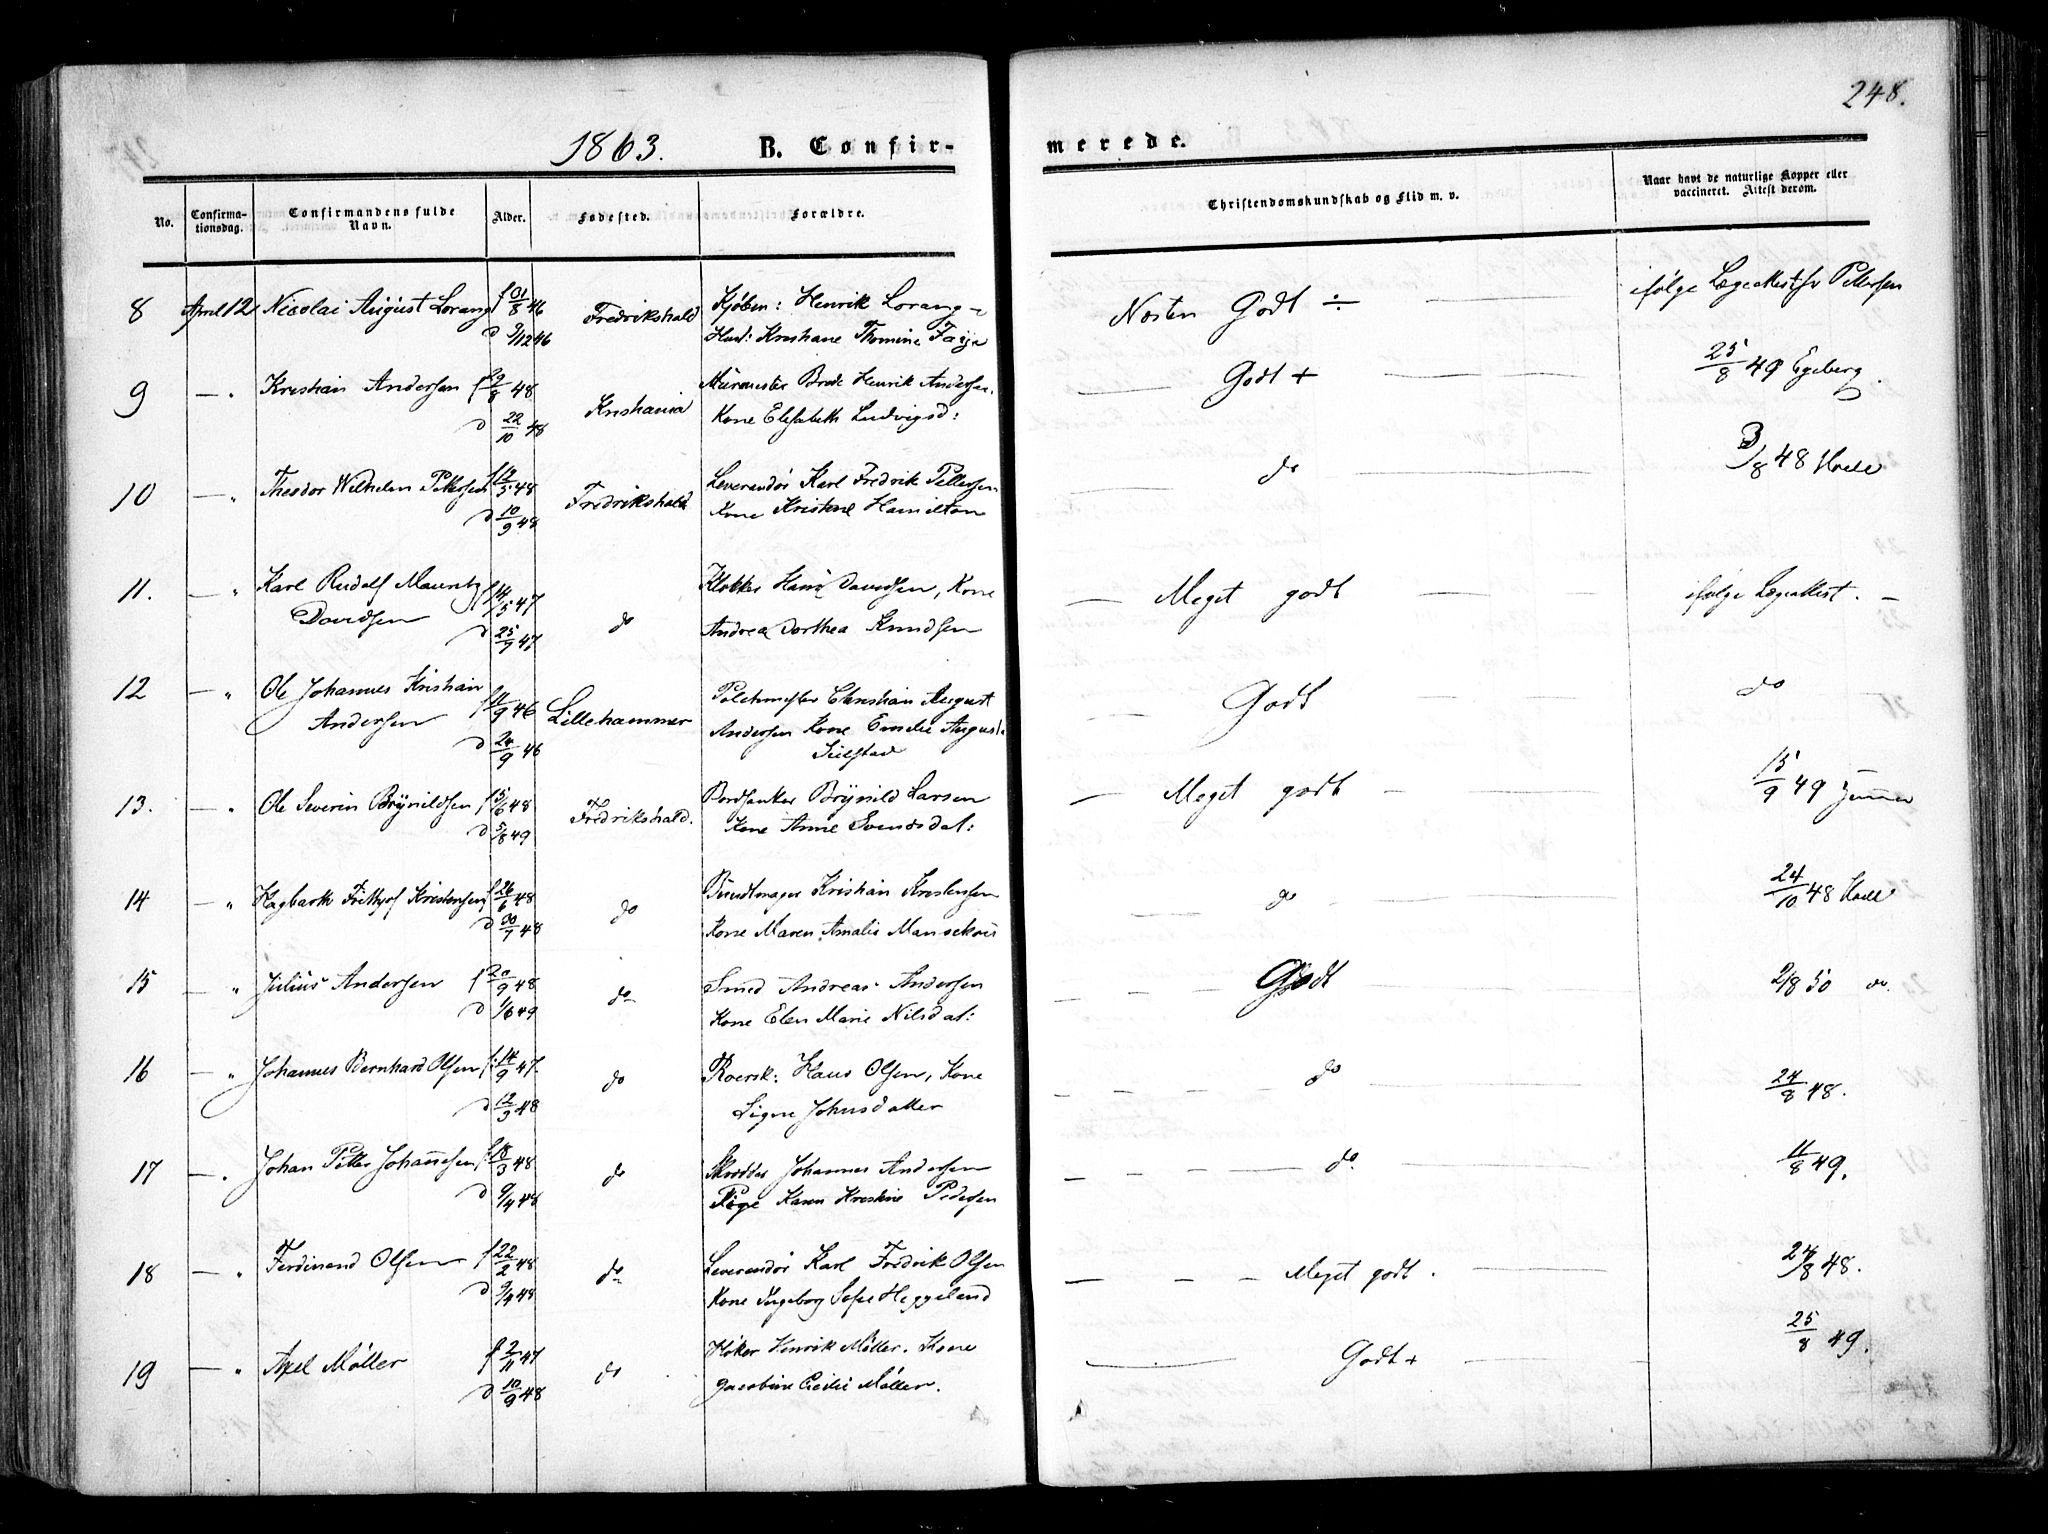 248.
1863. B. Confirmerede.
No. Confirmationsdag. Confirmandens fulde Navn. Alder. Fødested. Forældre. Christendomskundskab og Flid m. v. Naar havt de naturlige Kopper eller vaccineret. Attest derom.
8 April 12 Nicolai August Lorang f 31/8 46 Fredrikshald Kjøbm: Henrik Lorang Næsten Godt ÷ ifølge Lægeattest fr Pettersen
d 9/12 46 Hust: Kristiane Thomine
9 — " Kristian Andersen f 29/8 48 Kristiania Murmester Brede Henrik Andersen. Godt + 25/8 49 Egeberg.
d 22/10 48 Kone Elisabeth Ludvigsd:
10 — " Theodor Wilhelm Pettersen f 12/5 48 Fredrikshald Leverandør Karl Fredrik Pettersen do 3/8 48
d 10/9 48 Kone Kristine Hamilton
11. — " Karl Rudolf Mauritz f 14/5 47 do Klokker Hans Davidsen, Kone Meget godt ifølge Lægeattest.
Davidsen d 25/9 47 Andrea Dorthea Knudsen
12 — " Ole Johannes Kristian f 11/9 46 Lillehammer Politimester Christian August Godt do
Andersen d 24/9 46 Andersen Kone Emilie Augusta
13. — " Ole Severin Brynildsen f 5/6 48 Fredrikshald. Bordsanker Brynild Larsen Meget godt 15/9 49
d 5/8 49 Kone Anne Svendsdat:
14 — " Hagbarth Frithjof Kristensen f 26/6 48 do Buntmager Kristian Kristensen do 24/10 48
d 30/7 48 Kone Maren Amalie
15 — " Julius Andersen f 20/9 48 do Smed Andreas Andersen Godt 2/8 50 do.
d 1/6 49 Kone Elen Marie Nilsdat:
16 — " Johannes Bernhard Olsen f. 14/9 47. do Roersk: Hans Olsen, Kone do 24/8 48.
d 12/3 48 Signe Johnsdatter
17 — " Johan Petter Johannesen f. 18/3 48 do Skrædder Johannes Andersen do. 11/8 49.
d 9/4 48 Pige Karen Kristine Pedersen
18 — " Ferdinand Olsen f 22/2 48 do Leverandør Karl Fredrik Olsen Meget godt. 24/8 48.
d 9/4 48 Kone Ingeborg Sofie Heggeland
19 — " Axel Møller f 2/11 47 do Høker Henrik Møller. Kone Godt + 25/8 49.
d 10/9 48 Jacobine Cecilie Møller.